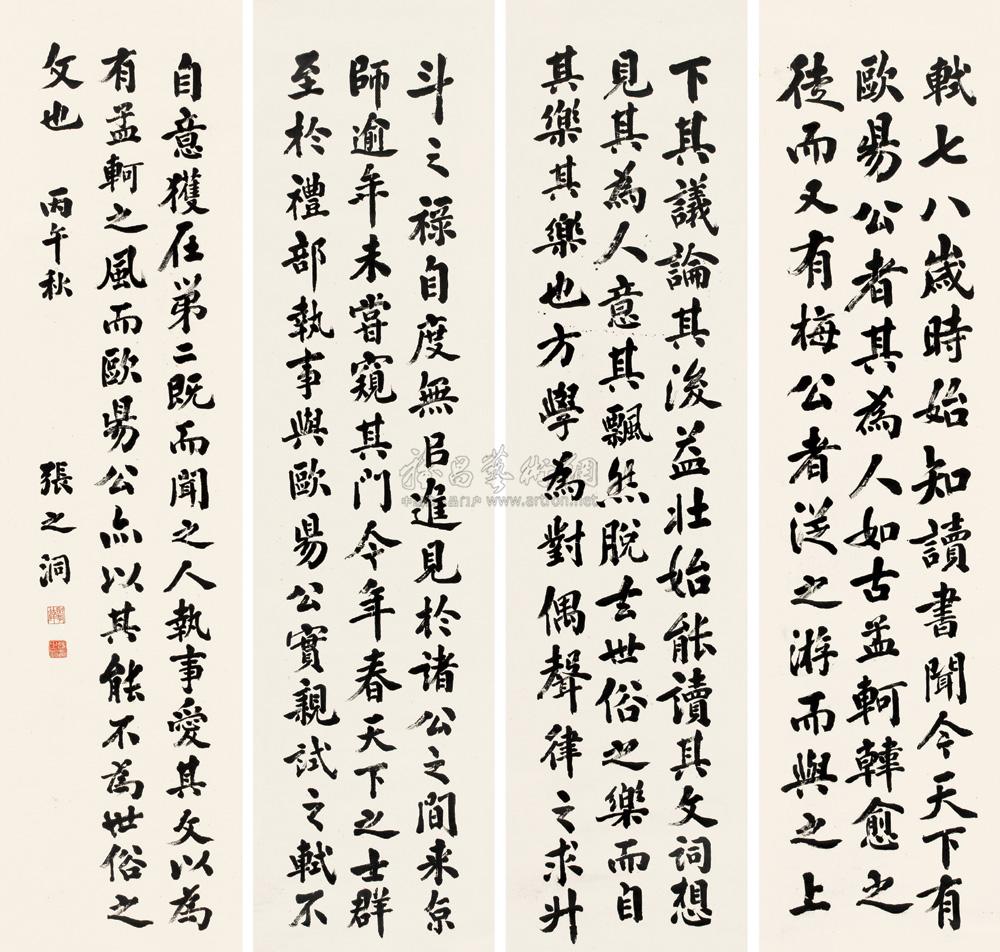 軾七八歲時始知讀書聞今天下有
歐昜公者其為人如古孟軻韓愈之
徒而又有梅公者從之游而與之上
下其議論其後益壯始能讀其文詞想
見其為人意其飄然脫去世俗之樂而自
其樂其樂也方學為對偶聲律之求升
斗之祿自度無㠯進見於諸公之間来京
師逾年未嘗窺其門今年春天下之士群
至於禮部執事與歐昜公實親試之軾不
自意獲在第二既而聞之人執事愛其文以為
有孟軻之風而歐昜公亦以其能不為世俗之
文也 丙午秋 張之洞
www.artron.net